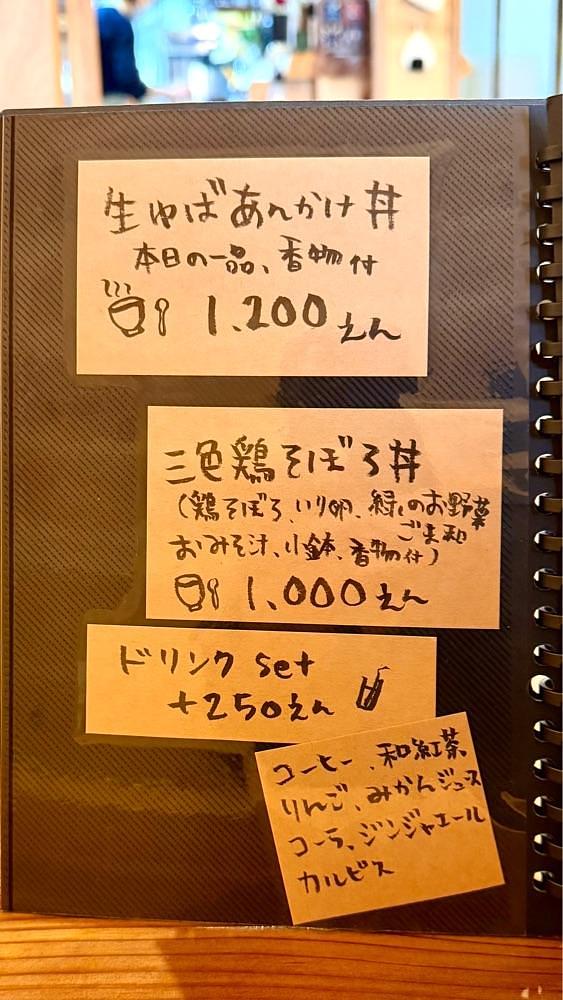 生ゆばあんかけ丼
本日の一品、香物付
1.200えん
三色鶏そぼろ丼
(鶏そぼろ、いり卵、緑のお野菜
ごま和
おみそ汁、小鉢、香物付)
1.000えん
ドリンク set
+250えん
コーヒー、和紅茶
りんご、みかんジュース
コーラ、ジンジャエール
カルピス